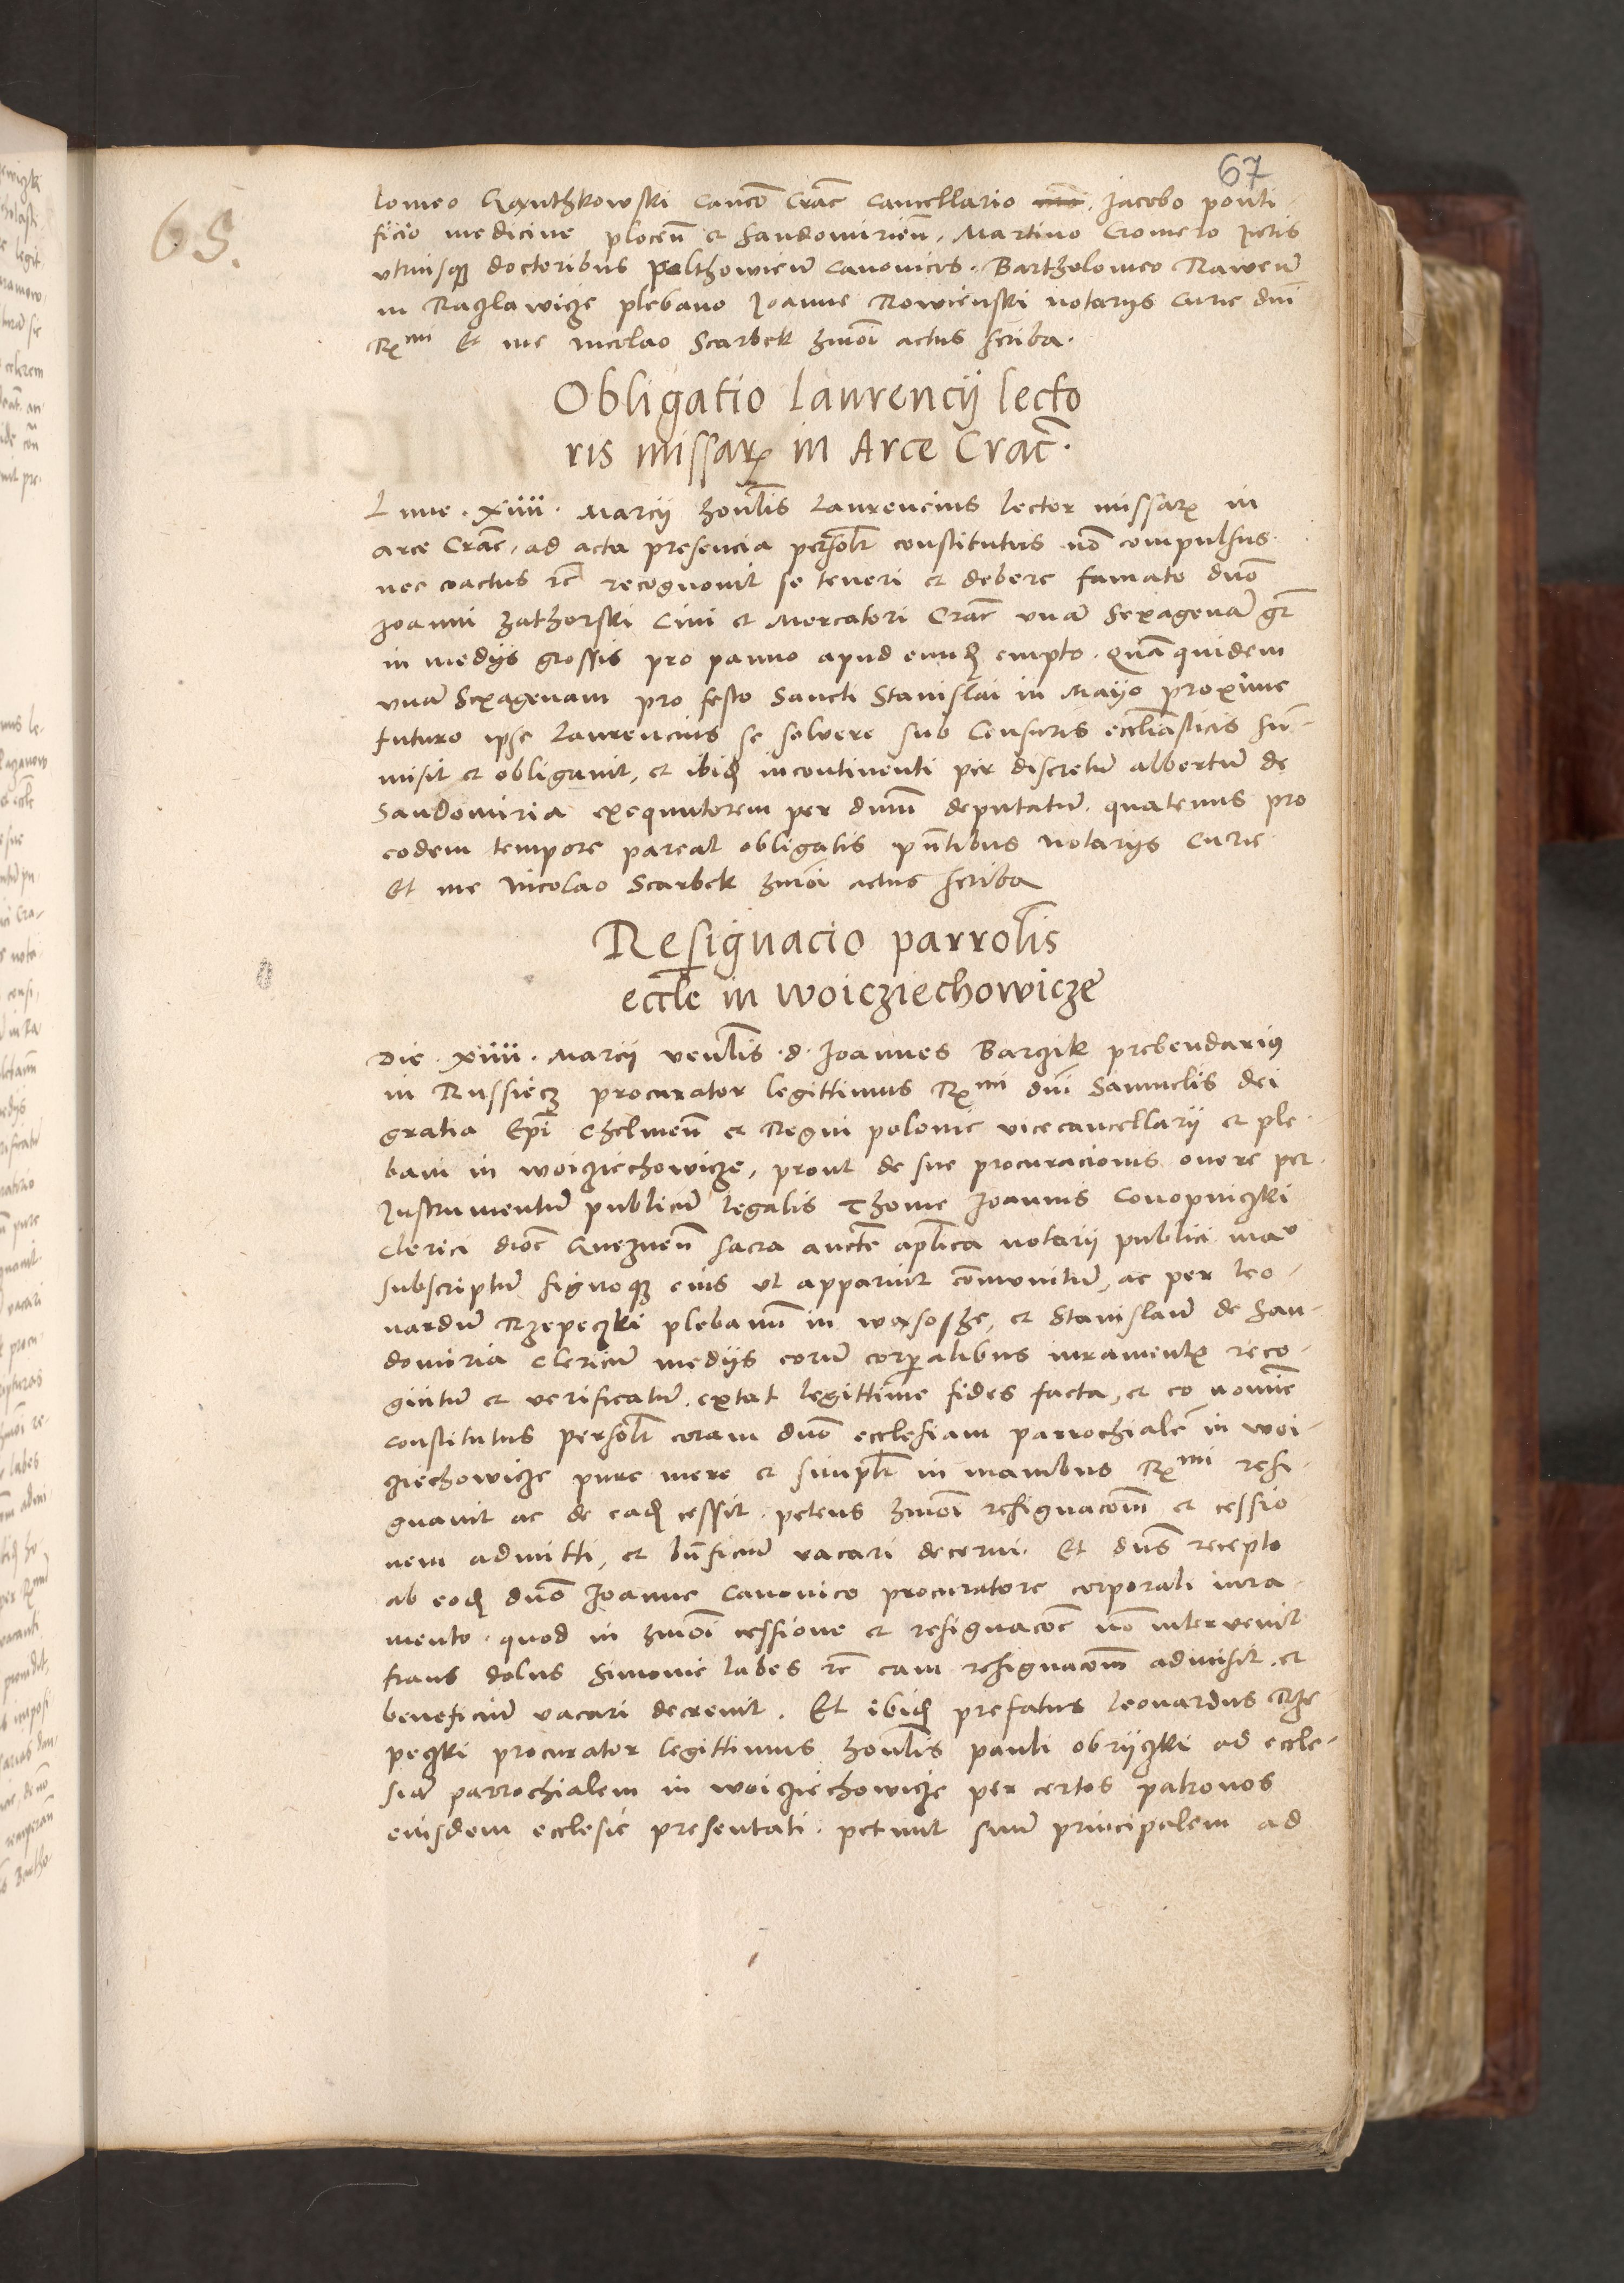 67
68.
lomeo Gąnthkowski Canco Crac Cancellario Jacobo ponti-
ficio medicine plocen et Sandomirien. Martino Cromero Juris
utriusq doctoribus polthovien canonicis. Bartholomeo Rawen
in Raczlawicze plebano Joanne Rowienski notariis Curie dni
Rmi Et me Nicolao Scarbek hmoi actus scriba.
Obligatio Laurencij lecto
ris missar in Arce Crac.
Lune. xiiii. Marcij honlis Laurencius lector missar in
arce Crac, ad acta presencia personlr constitutus no compulsus
nec coactus rc recognovit se teneri et debere famato dno
Joanni Zathorski Civi et Mercatori Crac una Sexagena gr
in medijs grossis pro panno apud eund empto. Qua quidem
una Sexagenam pro festo Sancti Stanislai in Mayo proxime
futuro ipse Laurencius se solvere sub Censuris eccliasticis sū-
misit et obligavit, et ibid incontinenti per discretum albertum de
Sandomiria exequutorem per dnum deputatum. quatenus pro
eodem tempore pareat obligatis pntibus notarijs Curie
Et me Nicolao Scarbek hmoi actus scriba
Resignacio parrolis
eccle in Woicziechowicze
Die. xiiii. Marcij venlis. d. Joannes Barczik prebendarius
in Russiecz procurator legittimus Rmi dni Samuelis dei
gratia Epi Chelmen et Regni polonie vicecancellarij et ple-
bani in Woicziechowicze, prout de sue procuracionis onere per
Instrumentum publicum legalis Thome Joannis Conopniczki
Clerici dioc Gneznen sacra aucte aplica notarij publici ma
subscriptum signoq eius ut apparuit comunitum, ac per leo-
nardum Rzepeczki plebanum in wąsosze, et Stanislaum de San-
domiria Clericum medijs eorum corporalibus iuramentis reco-
gnitum et verificatum. extat legittime fides facta, et eo nomie
constitutus personlr coram dno ecclesiam parrochiale in woi-
cziechowicze pure mere et simplr in manibus Rmi resi-
gnavit ac de ead cessit. petens hmoi resignacom et cessio-
nem admitti, et bnficium vacari decerni. Et dns recepto
ab eod dno Joanne Canonico procuratore corporali iura-
mento. quod in hmoi cessione et resignacoe no intervenit
fraus dolus Simonie labes rc eam resignacom admisit. et
beneficium vacari decrevit. Et ibid prefatus leonardus Rze-
peczki procurator legittimus honlis pauli obryczki ad eccle-
siam parrochialem in woicziechowicze per certos patronos
eiusdem ecclesie presentati. petivit suum principalem ad